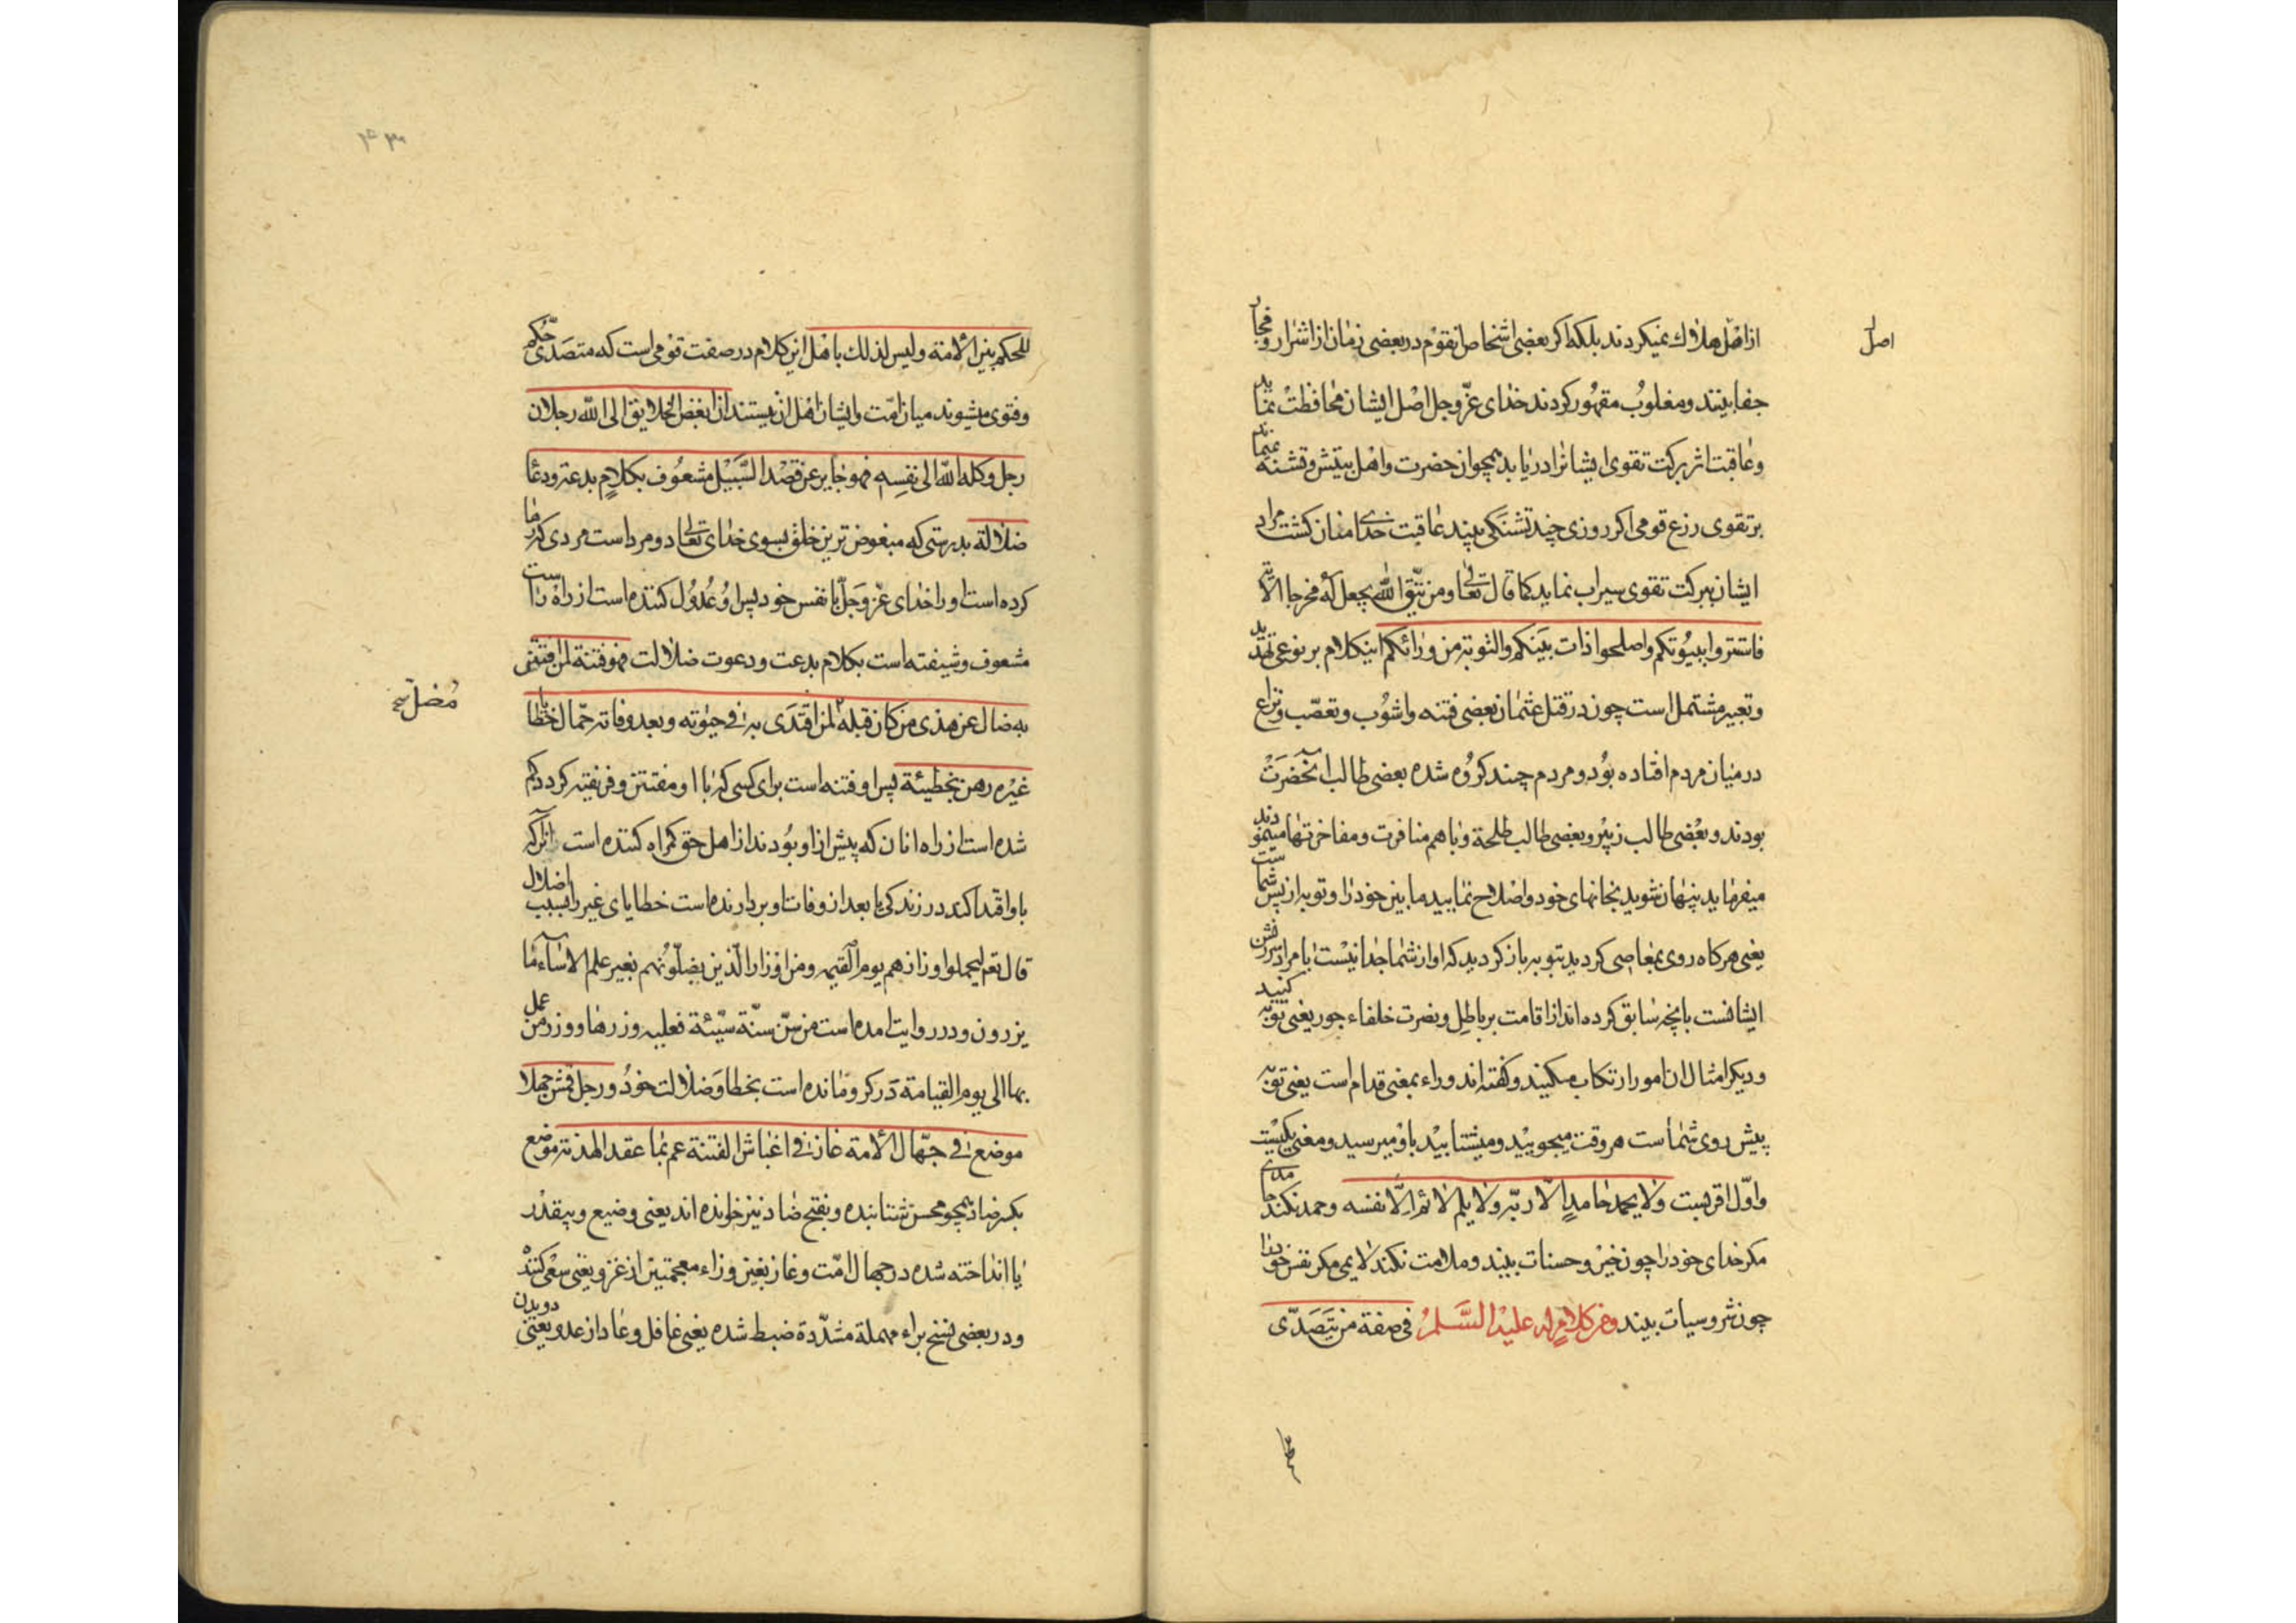 ازاهل هلاك نمیکردند بلکه اکر بعضی اشخاص انقوم در بعضی زمان از اشرار و فجار
اصل
جفا بینند و مغلوب مقهور کردند خدای عزّ وجل اصل ایشان محافظت نماید
وعاقبت اثر برکت تقوی ایشانرا دریابد همچو ان حضرت واهل بیتش وتشنه نمیماند
بر تقوی زرع قومی اکر روزی چند تشنکی بیند عاقبت خدای منان کشت مراد
ایشان ببرکت تقوی سیراب نماید کما قال تعالی ومن یتّق الله یجعل له مخرجا الآیة
فاستتروا ببیُوتکم واصلحوا ذات بَینکم والتوبة من ورائکم اینکلام بر نوعی تهدید
وتعییر مشتمل است چون در قتل عثمان بعضی فتنه واشوُب وتعصّب ونزاع
درمیان مردم افتاده بوُد ومردم چند کروُه شده بعضی طالب آنحضرَتْ
بودند وبعْضی طالب زبیْر وبعضی طالب طلحة وباهم منافرت ومفاخرتها مینمودند
میفرماید پنهان شوید بخانهای خود واصْلاح نمایید مابین خود را وتوبه از پس شماست
یعنی هرکاه روی بمعاصی کردید بتوبه باز کردید که او از شما جدا نیْست یا مراد سرزنش
ایشانست بانچه سابق کرده اند از اقامت بر باطِل ونصرت خلفاء جور یعنی توبه کنید
ودیکر امثال ان امور ارتکاب مکنید وکفته اند وراء بمعنی قدام است یعنی توبه
پیش روی شماست هر وقت میجوییْد ومیشتابیْد باوْ میرسید ومعنی یکیْست
واوّل اقربست ولا یحمد حامدٍ الّا ربّه ولا یلم لائم الّا نفسه وحمد نکند حامدی
مکر خدای خود را چون خیْر وحسنات بیند وملامت نکند لایمی مکر نفس خود را
چون شر وسیات بیند ومن کلامٍ له علیْه السَّلمُ فی صفة من یتَصَدّی
للحکم بین الأمّة ولیس لذلك باهْل این کلام در صفت قوْمی است که متصَدّی حُکم
وفتوی میشوند میان امّت وایشان اهْل ان نیستند انّ ابغض الخلایق الی اللّه رجلان
رجل وکله اللّه الی نفسِه فهو جایر عن قصْد السَّبیْل مشعُوف بکلامٍ بدعة ودعا
ضلالة بدرستی که مبغوض ترین خلق بسوی خدای تعالی دو مرد است مردی که رها
کرده است او را خدای عزّ وَجَلّ با نفس خود پس او عُدوُل کننده است از راه راست
مشعوف وشیفته است بکلام بدعت ودعوت ضلالت فهو فتنة لمن افتتن
به ضال عن هذی من کان قبله مُضلّ لمن اقتَدَی به فی حیٰوته وبعد وفاته حمّال لخطایا
غیْره رهن بخطیئة پس او فتنه است برای کسی که با او مفتتن وفریفته کردد کم
شده است از راه انان که پیش از او بوُدند از اهل حق کمراه کننده است انرا که
باو اقتدا کند در زندکی یا بعد از وفات او بردارنده است خطایای غیر را بسبب اضلال
قال تعم لیحملوا اوزارهم یوم القیٰمه ومن اوْزار الّذین یضلّوُنهم بغیر علم الا سآء ما
یزرون ودر روایت امده است من سّن سنّة سیّئة فعلیه وزرها ووزر من عمل
بها الی یوم القیامة دَر کرو مانده است بخطا وَضلالت خودُ ورجل قمش جهلا
موضع فی جهّال الأمة غاز فی اغباش الفتنة عم بما عقد الهدنة موضع
بکسر ضاد همچو محسن شتابنده وبفتح ضاد نیز خوانده اند یعنی وضیع وبیقدْر
یا انداخته شده در جهال امّت وغاز بغین وزاء معجمتین از غزو یعنی سعْی کنندْه
ودر بعضی نسخ براء مهملة مشدّدة ضبط شده یعنی غافل وعاد از عدو یعنی دویدن